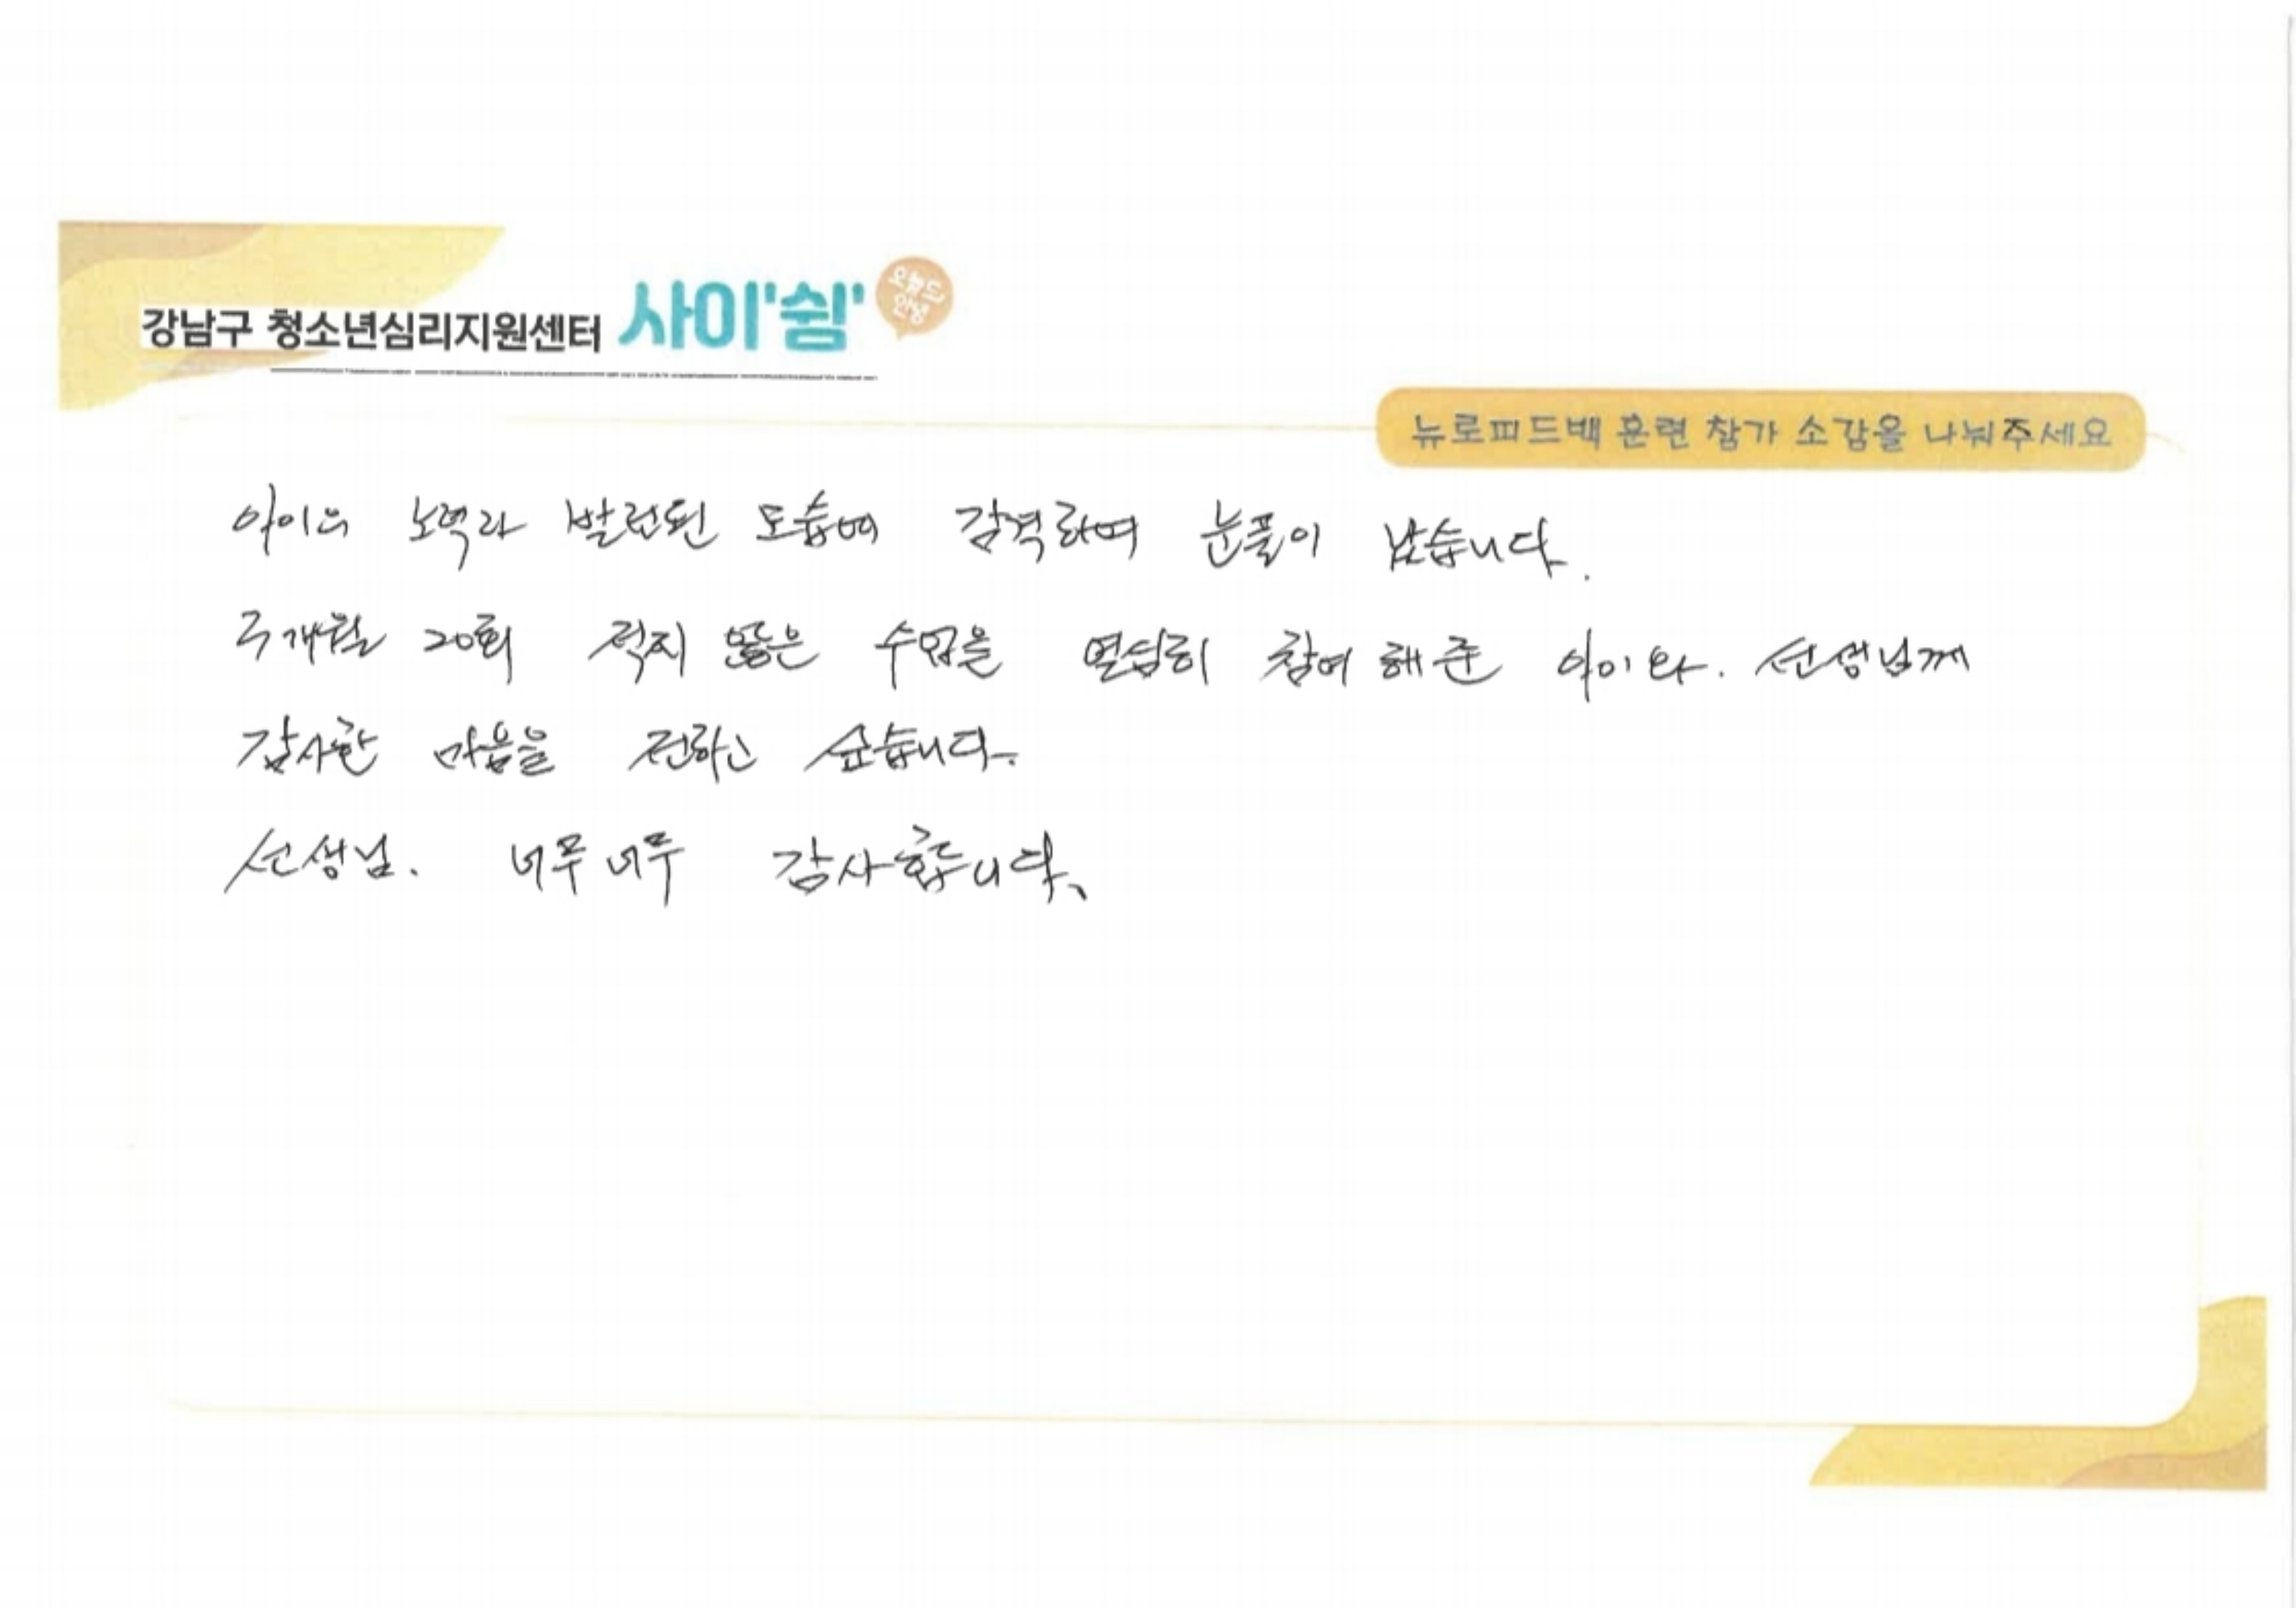 강남구 청소년심리지원센터 사이'쉼' 오늘도 안녕
뉴로피드백 훈련 참가 소감을 나눠주세요
아이의 노력과 발전된 모습에 감격하며 눈물이 났습니다.
3개월 20회 적지 않은 수업을 열심히 참여 해 준 아이와. 선생님께
감사한 마음을 전하고 싶습니다.
선생님. 너무 너무 감사합니다.